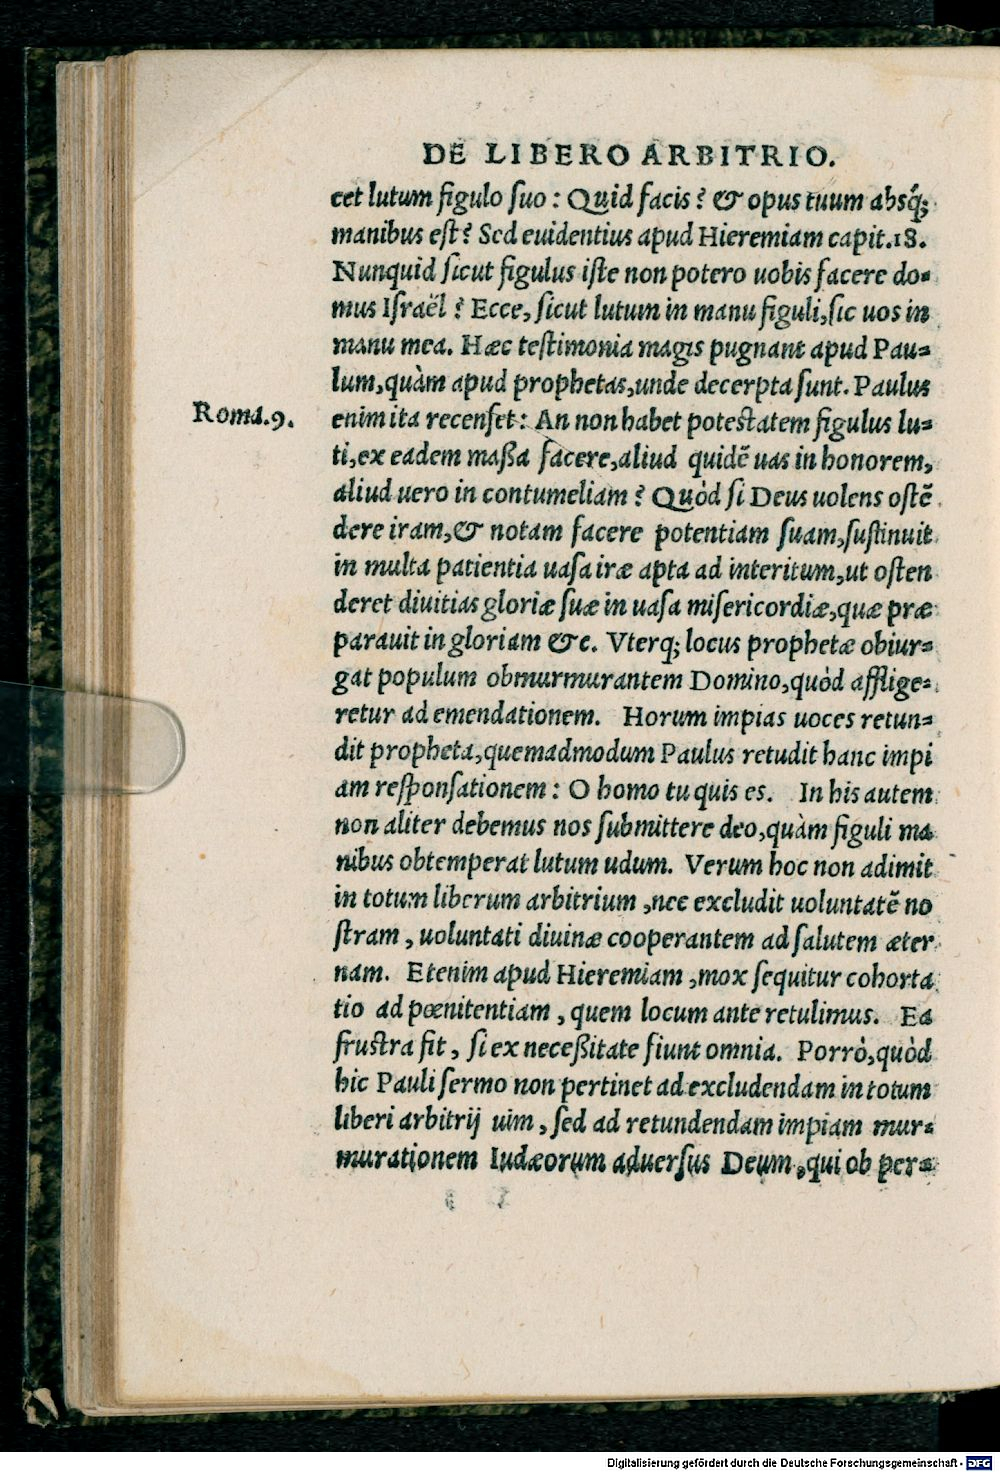 DE LIBERO ARBITRIO.
cet lutum figulo ſuo : Quid facis ? & opus tuum absq́;
manibus eſt ? Sed euidentius apud Hieremiam capit.18.
Nunquid ſicut figulus iſte non potero uobis facere do=
mus Iſraël ? Ecce, ſicut lutum in manu figuli, ſic uos in
manu mea. Hæc teſtimonia magis pugnant apud Pau=
lum, quàm apud prophetas, unde decerpta ſunt. Paulus
Roma.9.
enim ita recenſet : An non habet poteſtatem figulus lu=
ti, ex eadem maßa facere, aliud quidē uas in honorem,
aliud uero in contumeliam ? Quòd ſi Deus uolens oſtē
dere iram, & notam facere potentiam ſuam, ſuſtinuit
in multa patientia uaſa iræ apta ad interitum, ut oſten
deret diuitias gloriæ ſuæ in uaſa miſericordiæ, quæ præ
parauit in gloriam &c. Vterq; locus prophetæ obiur=
gat populum obmurmurantem Domino, quòd afflige=
retur ad emendationem. Horum impias uoces retun=
dit propheta, quemadmodum Paulus retudit hanc impi
am reſponſationem : O homo tu quis es. In his autem
non aliter debemus nos ſubmittere deo, quàm figuli ma
nibus obtemperat lutum udum. Verum hoc non adimit
in totum liberum arbitrium , nec excludit uoluntatē no
ſtram , uoluntati diuinæ cooperantem ad ſalutem æter
nam. Etenim apud Hieremiam , mox ſequitur cohorta
tio ad pœnitentiam , quem locum ante retulimus. Ea
fruſtra fit , ſi ex neceßitate fiunt omnia. Porrò, quòd
hic Pauli ſermo non pertinet ad excludendam in totum
liberi arbitrij uim , ſed ad retundendam impiam mur=
murationem Iudæorum aduerſus Deum , qui ob per=
Digitalisierung gefördert durch die Deutsche Forschungsgemeinschaft - DFG